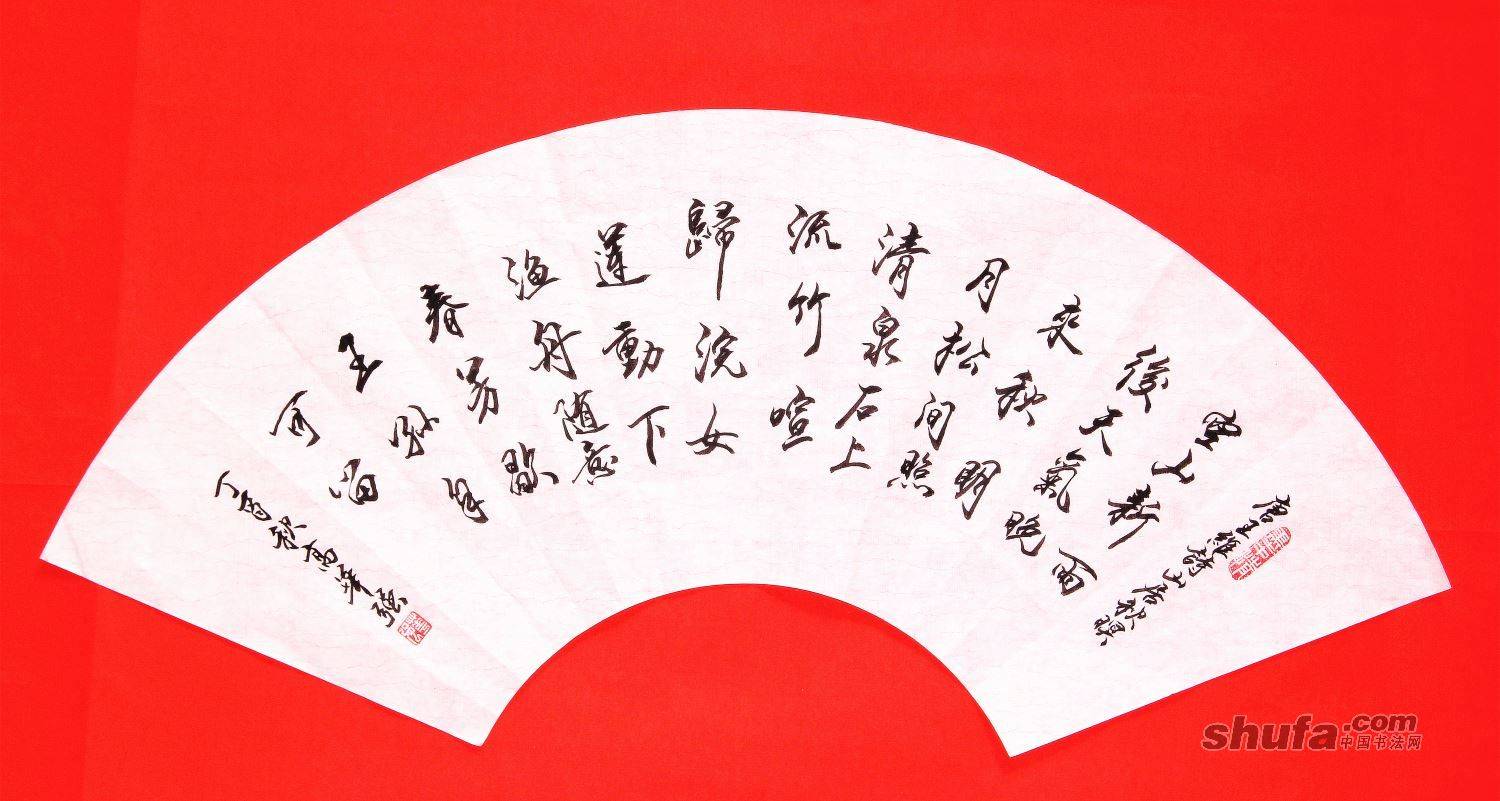 唐王維詩山居秋暝
空山新雨
後天氣晚
来秋明
月松間照
清泉石上
流竹喧
歸浣女
蓮動下
漁舟随意
春芳歇
王孫自
可留
丁酉秋高峰强
shufa.com
中国书法网